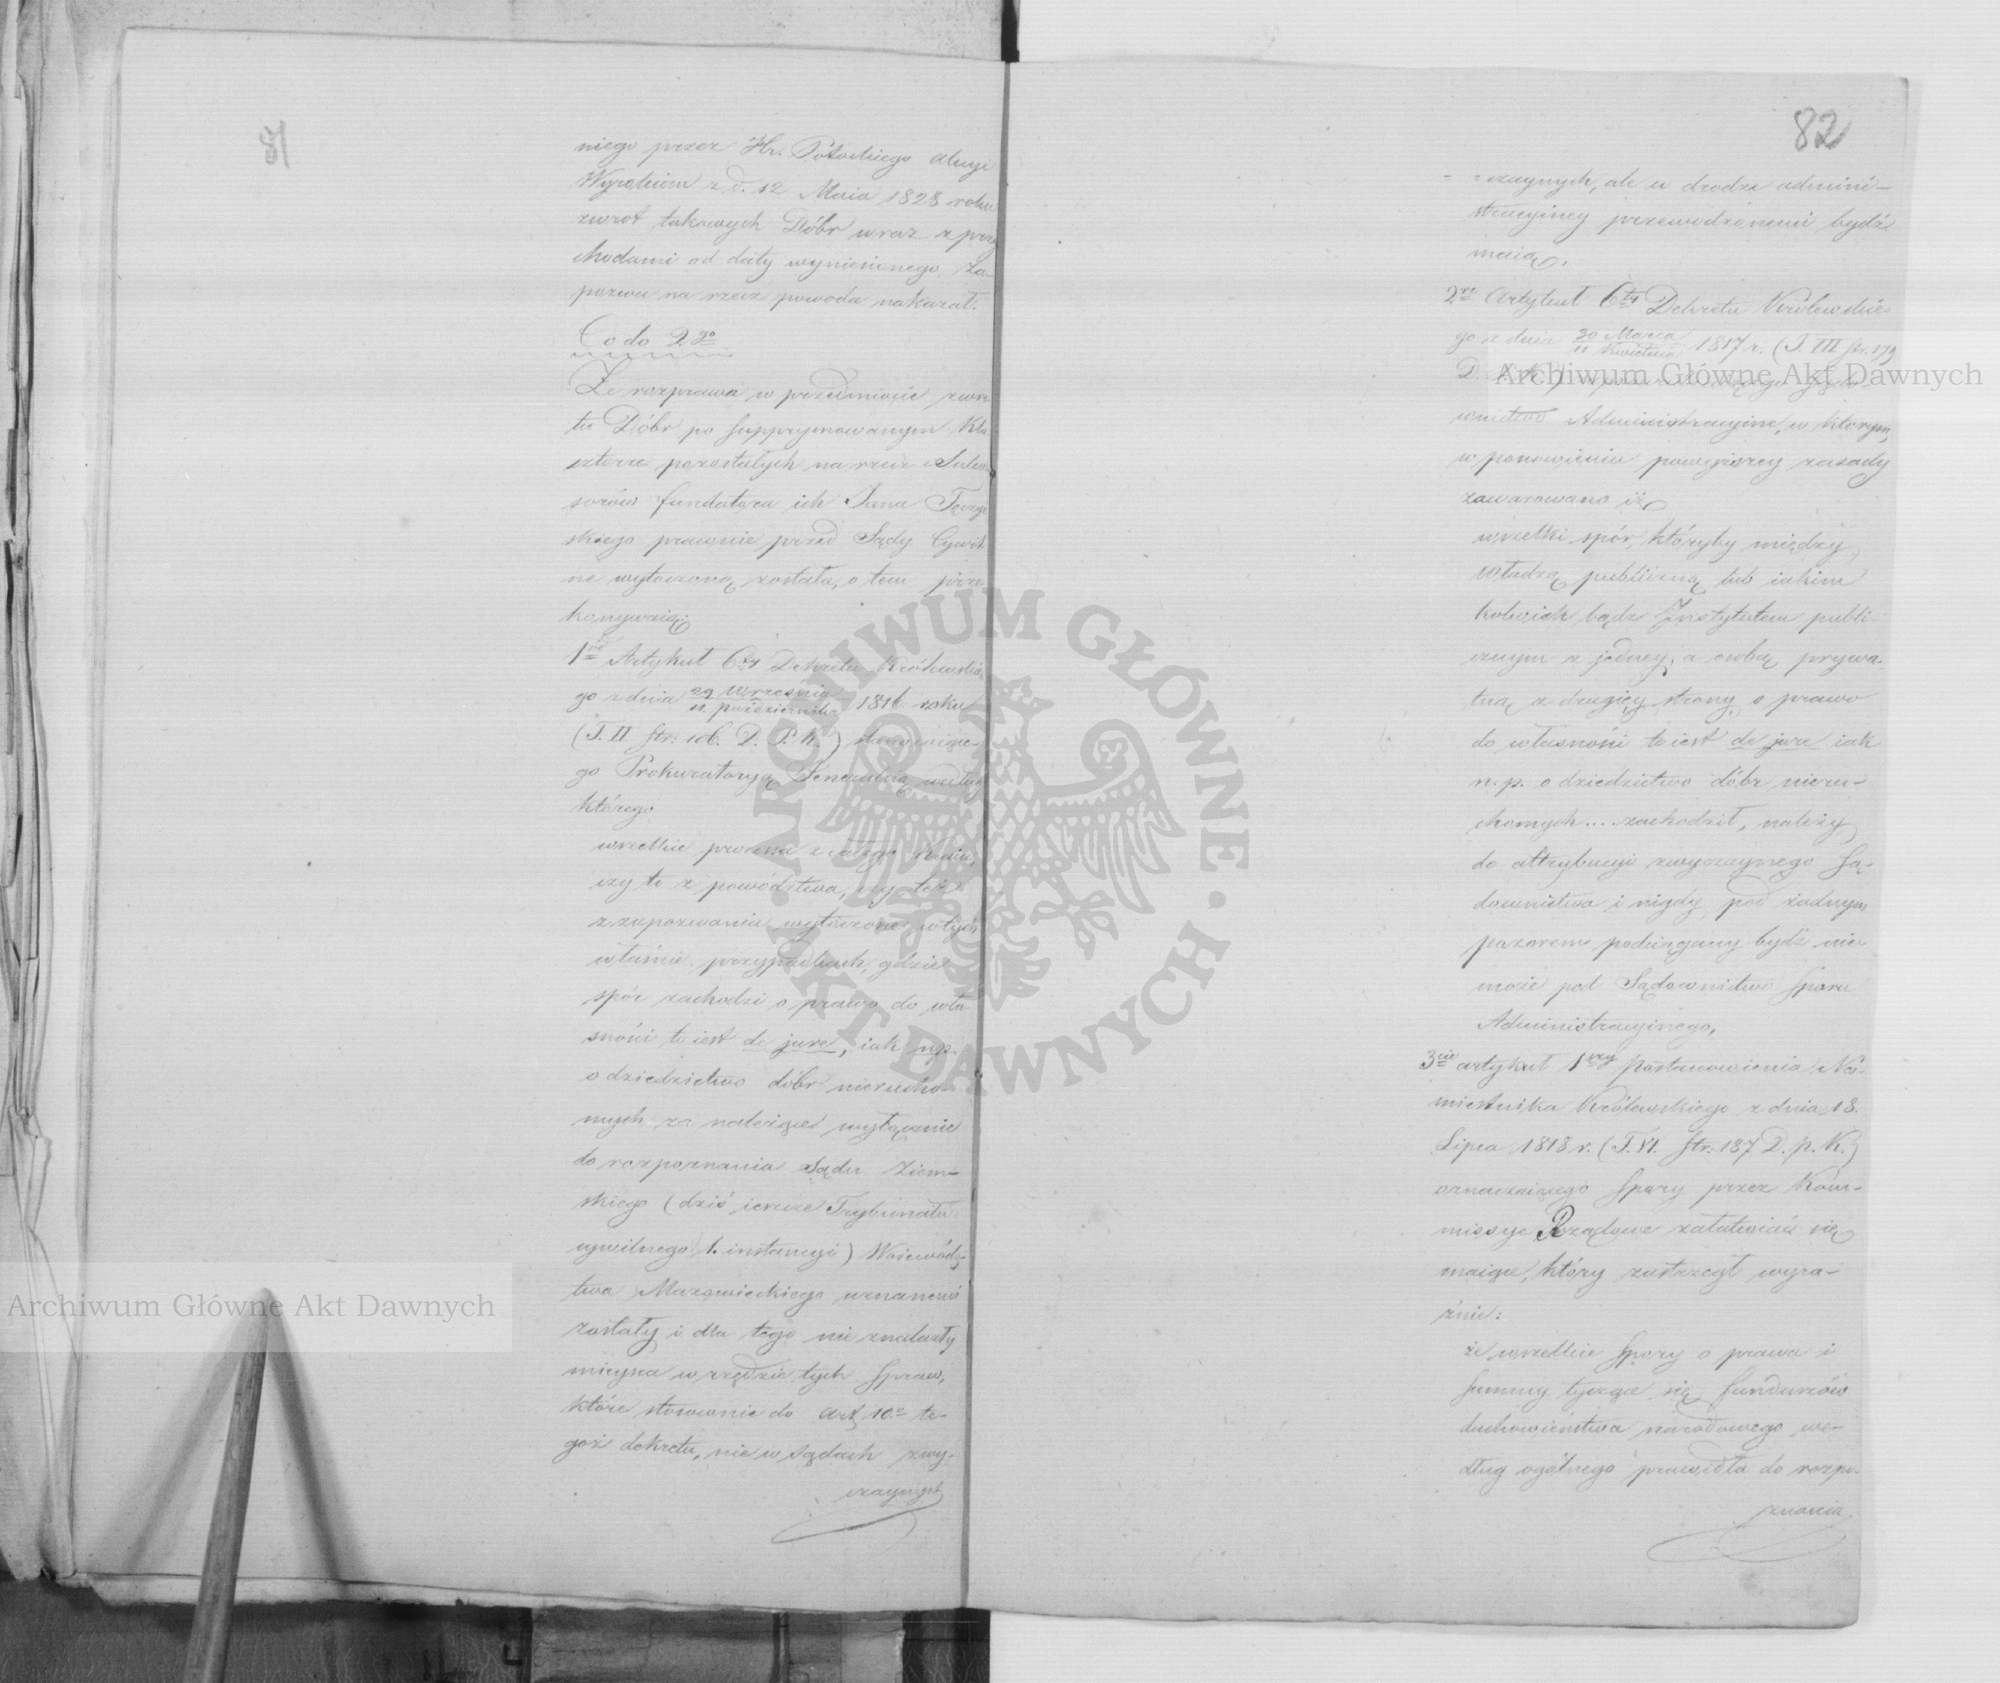 81
niego przez Hr. Potockiego akcyi
Wyrokiem z d. 12 Maia 1828 roku
zwrot takowych Dóbr wraz z przy
chodami od daty wyniesionego Za-
pozwu na rzecz powoda nakazał.
Co do 2go
Że rozprawa w przedmiocie zwro
tu Dóbr po supprymowanym Kla
sztorze pozostałych na rzecz Sukces
sorów fundatora ich Jana Tęczyń
skiego prawnie przed Sądy Cywil
ne wytoczoną została, o tem prze
konywaią:
1re Artykuł 6ty Dekretu Królewskie
go z dnia 29 Września / 11 Października 1816 roku
(T. II str. D. P. K.) stanowiące-
go Prokuratoryą Generalną, według
którego
wszelkie processa z całego Kraiu,
czy to z powództwa, czy też
z zapozwania wytoczone w tych
właśnie przypadkach, gdzie
spór zachodzi o prawo do wła
sności to iest de jure, iak np.
o dziedzictwo dóbr nierucho-
mych za należące wyłącznie
do rozpoznania Sądu Ziem-
skiego (dziś ieszcze Trybunału
cywilnego 1. instancyi) Woiewódz-
twa Mazowieckiego uznanemi
zostały, i dla tego nie znalazły
mieysca w rzędzie tych spraw,
które stosownie do art. 10o te-
goż dekretu, nie w sądach zwy-
czaynych
82
= =czaynych, ale w drodze admini-
stracyiney przewodzonemi bydź
maią.
2re Artykuł 6ty Dekretu Królewskie
go z dnia 30 Marca / 11 Kwietnia 1817 r. (T. III str. 179
D. P. K.) Sądo-
wnictwo Administracyine, w którym,
w ponowieniu powyższey zasady
zawarowano iż
wszelki spór, któryby między
Władzą publiczną lub iakim
kolwiek bądź Instytutem publi-
cznym z jedney, a osobą prywa-
tną z drugiey strony, o prawo
do własności to iest de jure iak
n. p. o dziedzictwo dóbr nieru-
chomych... zachodził, należy
do attrybucyi zwyczaynego Są-
downictwa i nigdy pod żadnym
pozorem podciągany bydź nie
może pod Sądownictwo Sporu
Administracyinego.
3cie artykuł 1wszy Postanowienia Na-
miestnika Królewskiego z dnia 18.
Lipca 1818 r. (T. VI. str. 187 D. p. K.)
oznaczaiącego Spory przez Kom-
missye Rządowe załatwiać się
maiące, który zastrzegł wyra-
źnie:
że wszelkie Spory o prawa i
summy tyczące się funduszów
duchowieństwa narodowego we-
dług ogólnego prawidła do rozpo-
znania
Archiwum Główne Akt Dawnych
Archiwum Główne Akt Dawnych
ARCHIWUM GŁÓWNE • AKT DAWNYCH •